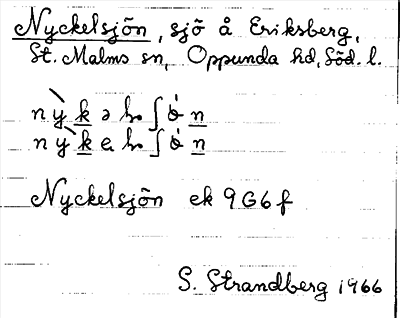 Nyckelsjön, sjö å Eriksberg,
St. Malms sn, Oppunda hd, Söd. l.
Nyckelsjön ek 9G6f
S. Strandberg 1966